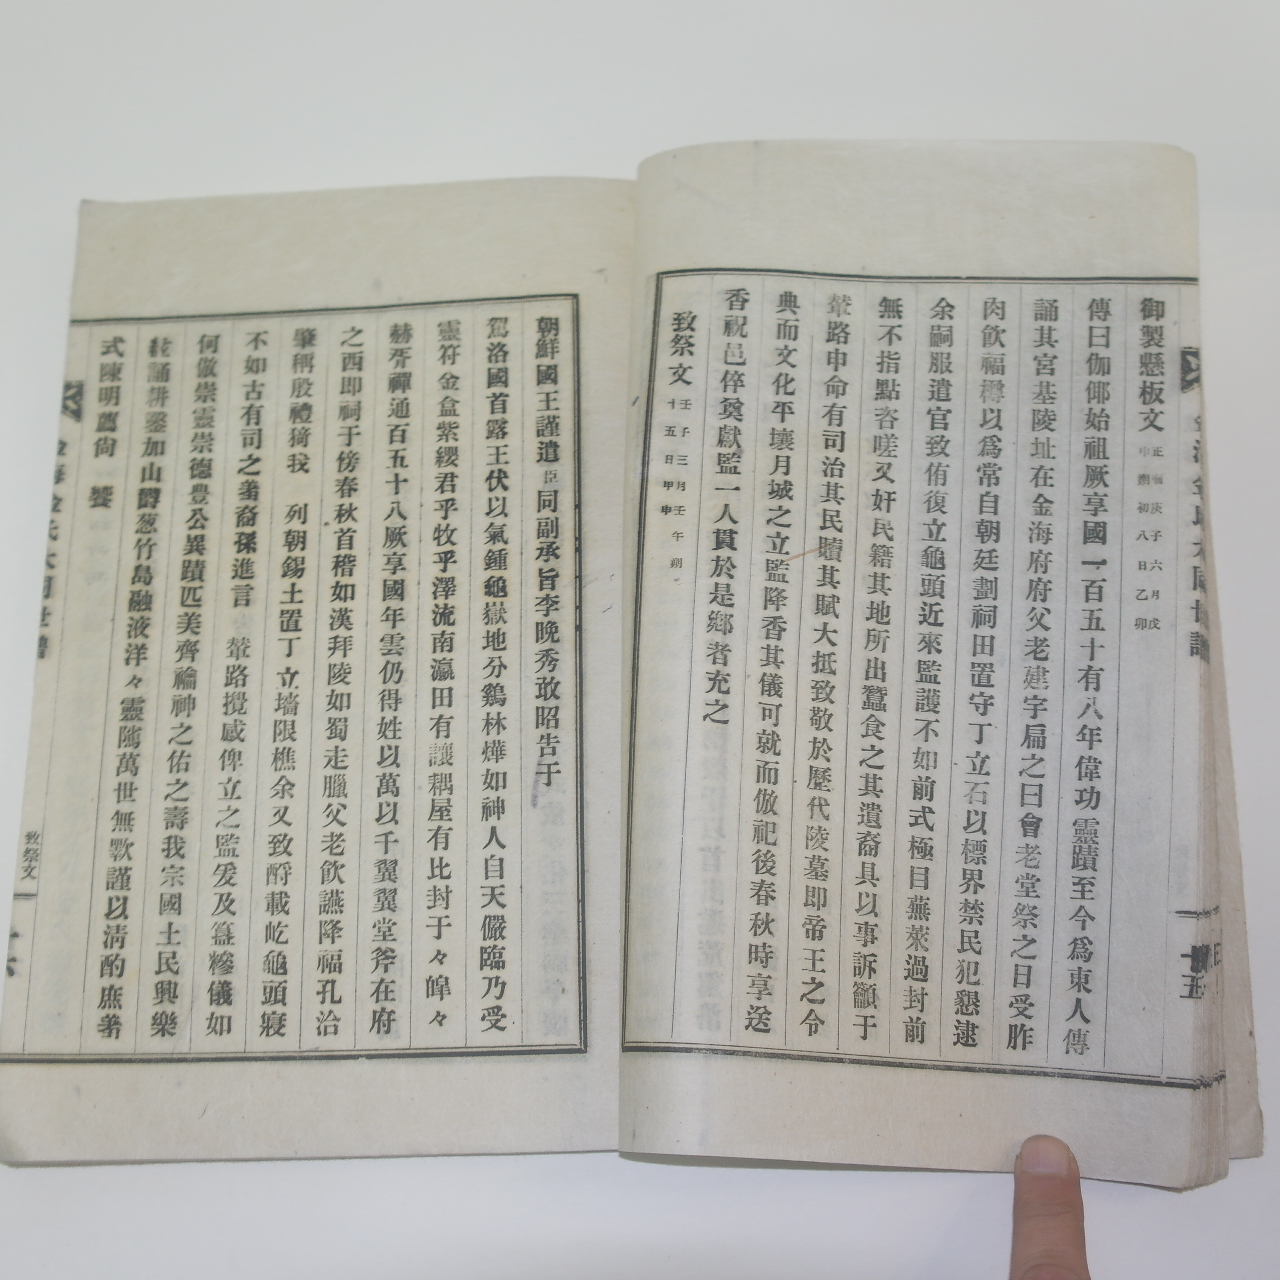 御製懸板文 正宿庚子六月戊申朔初八日乙卯
傳曰伽倻始祖厥享國一百五十有八年偉功靈蹟至今爲東人傳
誦其宮基陵址在金海府府父老建宇扁之曰會老堂祭之日受胙
肉飮福樽以爲常自朝廷劃祠田置守丁立石以標界禁民犯懇逮
余嗣服遣官致侑復立龜頭近來監護不如前式極目蕪萊過封前
無不指點咨嗟又奸民籍其地所出蠶食之其遺裔具以事訴籲于
輦路申命有司治其民贖其賦大抵致敬於歷代陵墓即帝王之令
典而文化平壤月城之立監降香其儀可就而倣祀後春秋時享送
香祝邑倅奠獻監一人貫於是鄕者充之
致祭文 壬子三月壬午朔十五日甲申
十五
朝鮮國王謹遣臣同副承旨李晩秀敢昭告于
駕洛國首露王伏以氣鍾龜嶽地分鷄林燁如神人自天儼臨乃受
靈符金盒紫纓君乎牧乎澤流南瀛田有讓耦屋有比封于々皥々
赫胥禪通百五十八厥享國年雲仍得姓以萬以千翼翼堂斧在府
之西即祠于傍春秋首稽如漢拜陵如蜀走臘父老飮讌降福孔洽
肇稱殷禮猗我 列朝錫土置丁立墻限樵余又致酹載屹龜頭寢
不如古有司之羞裔孫進言 輦路攪感俾立之監爰及簋糝儀如
何倣崇靈崇德豊公異蹟匹美齊禴神之佑之壽我宗國土民興樂
載誦耕鑿加山欝葱竹島融液洋々靈陟萬世無斁謹以淸酌庶羞
式陳明薦尙 饗
金海金氏大同世譜
致祭文
十六